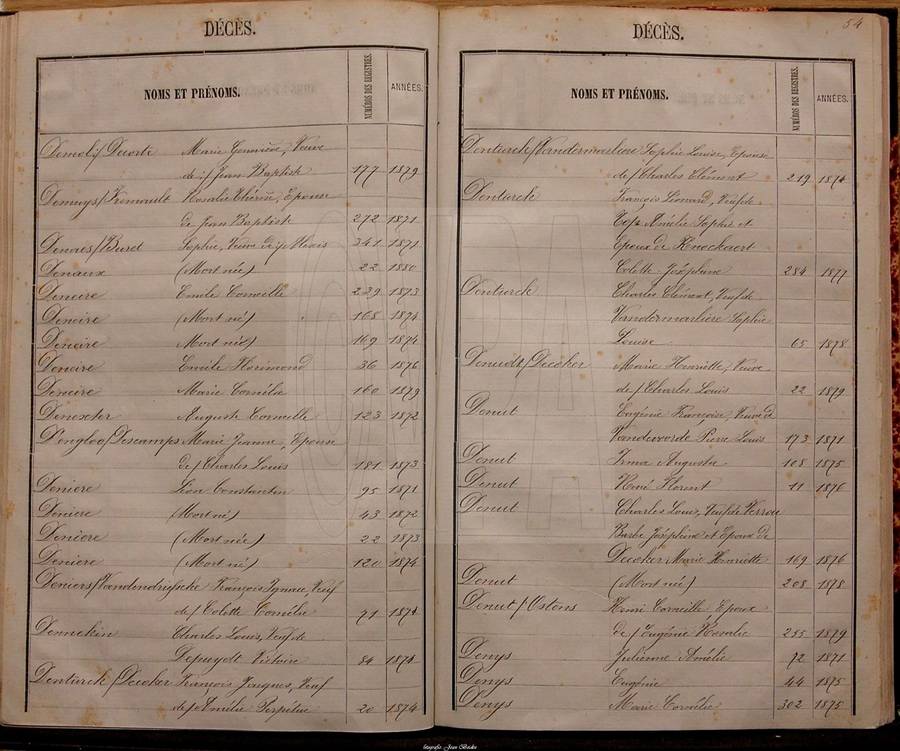 DÉCÈS.
NOMS ET PRÉNOMS. NUMÉROS DES REGISTRES. ANNÉES.
Marie Geneviève, Veuve
de / Jean Baptist 177 1879
Rosalie Thérèse, Epouse
de Jean Baptist 272 1871
Denaes / Buret Sophie, Veuve de / Alexis 341 1871
Denaux (Mort née) 22 1880
Deneire Emile Corneille 239 1873
Deneire (Mort né) 168 1874
Deneire (Mort née) 169 1874
Deneire Emile Florimond 36 1876
Deneire Marie Cornélie 160 1879
Auguste Corneille 123 1872
Dengloo / Descamps Marie Jeanne, Epouse
de / Charles Louis 181 1873
Deniere Léon Constantin 95 1871
Deniere (Mort né) 43 1872
Deniere (Mort née) 22 1873
Deniere (Mort né) 120 1874
Deniers / Vandendriesche François Ignace, Veuf
de / Colette Cornélie 71 1871
Dennekin Charles Louis, Veuf de
Depuydt Victoire 84 1871
Denturck / Decoker François Jacques, Veuf
de / Amélie Perpétue 20 1874
DÉCÈS. 54
NOMS ET PRÉNOMS. NUMÉROS DES REGISTRES. ANNÉES.
Denturck / Vandermarliere Sophie Louise, Epouse
de / Charles Clément 219 1874
Denturck François Léonard, Veuf de
Amélie Sophie et
Epoux de Knockaert
Colette Joséphine 284 1877
Denturck Charles Clément, Veuf de
Vandermarliere Sophie
Louise 65 1878
Decoker Marie Henriette, Veuve
de / Charles Louis 22 1879
Denut Eugénie Françoise, Veuve de
Vandevoorde Pierre Louis 173 1871
Denut Irma Augusta 108 1875
Denut René Florent 11 1876
Denut Charles Louis, Veuf de
Barbe Joséphine et Epoux de
Decoker Marie Henriette 169 1876
Denut (Mort née) 208 1878
Denut / Ostens Henri Corneille Epoux
de / Eugénie 255 1879
Denys Julienne Amélie 72 1871
Denys Eugénie 44 1875
Denys Marie Cornélie 302 1875
fotografie Jean Beele